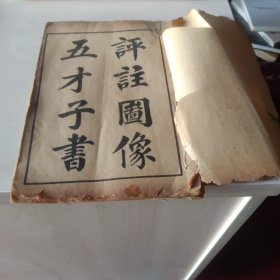 評註圖像
五才子書